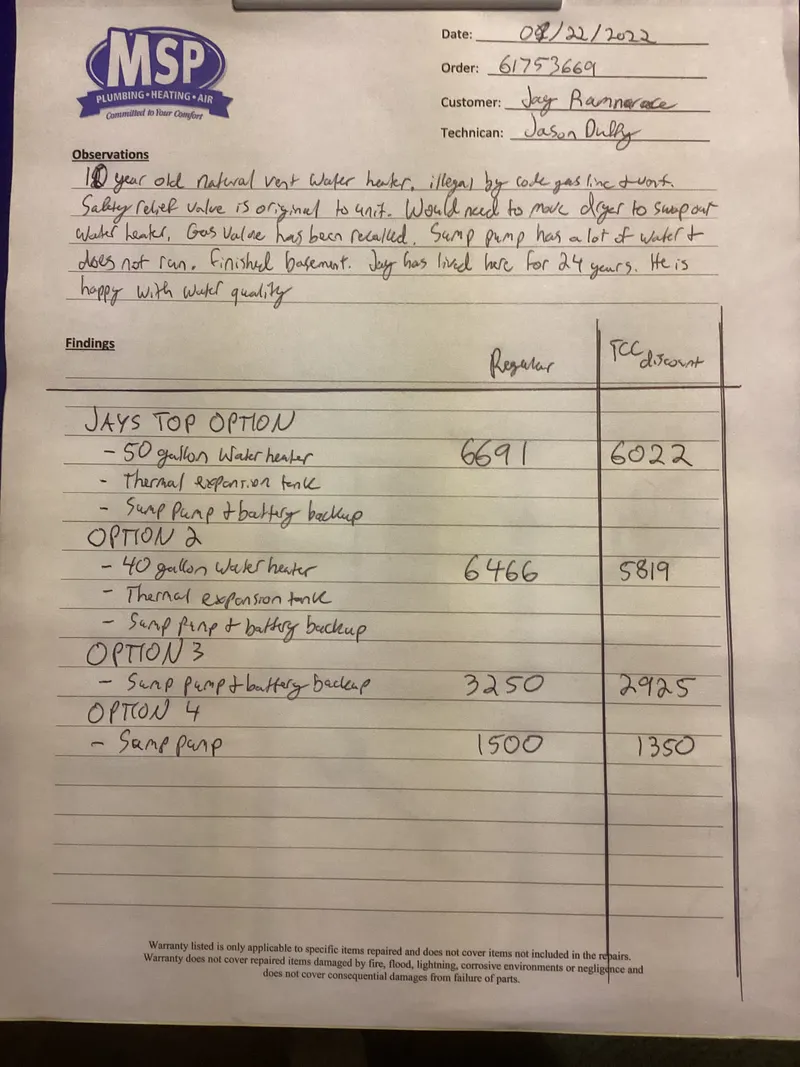 MSP
PLUMBING • HEATING • AIR
Committed to Your Comfort
Date: 01/22/2022
Order: 61753669
Customer: Jay
Technican: Jason Duffy
Observations
10 year old natural vent water heater, illegal by code gas line & vent.
Safety relief valve is original to unit. Would need to move dryer to swap out
water heater. Gas valve has been recalled. Sump pump has a lot of water &
does not run. Finished basement. Jay has lived here for 24 years. He is
happy with water quality
Findings
Regular
TCC discount
JAYS TOP OPTION
- 50 gallon water heater 6691 6022
- Thermal expansion tank
- Sump pump & battery backup
OPTION 2
- 40 gallon water heater 6466 5819
- Thermal expansion tank
- Sump pump & battery backup
OPTION 3
- Sump pump & battery backup 3250 2925
OPTION 4
- Sump pump 1500 1350
Warranty listed is only applicable to specific items repaired and does not cover items not included in the repairs.
Warranty does not cover repaired items damaged by fire, flood, lightning, corrosive environments or negligence and
does not cover consequential damages from failure of parts.